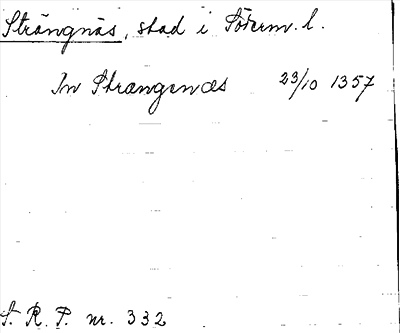 Strängnäs, stad i Söderm. l.
In Strangenæs 23/10 1357
S. R. P. nr. 332